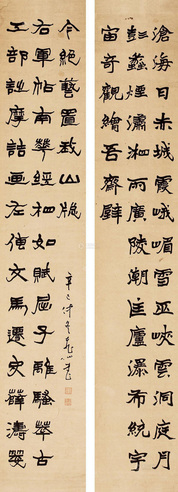 滄海日赤城霞峨嵋雪巫峽雲洞庭月
彭蠡煙瀟湘雨廣陵潮匡廬瀑布統宇
宙奇觀繪吾齋壁
工部詩摩詰画左傳文馬遷史薛濤箋
右軍帖南華經相如賦屈子離騷萃古
今絕藝置我山牕